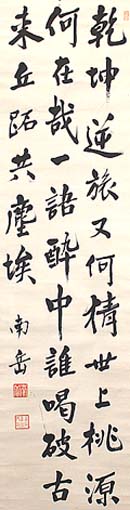 乾坤逆旅又何猜世上桃源
何在哉一語醉中誰喝破古
来丘跖共塵埃
南岳